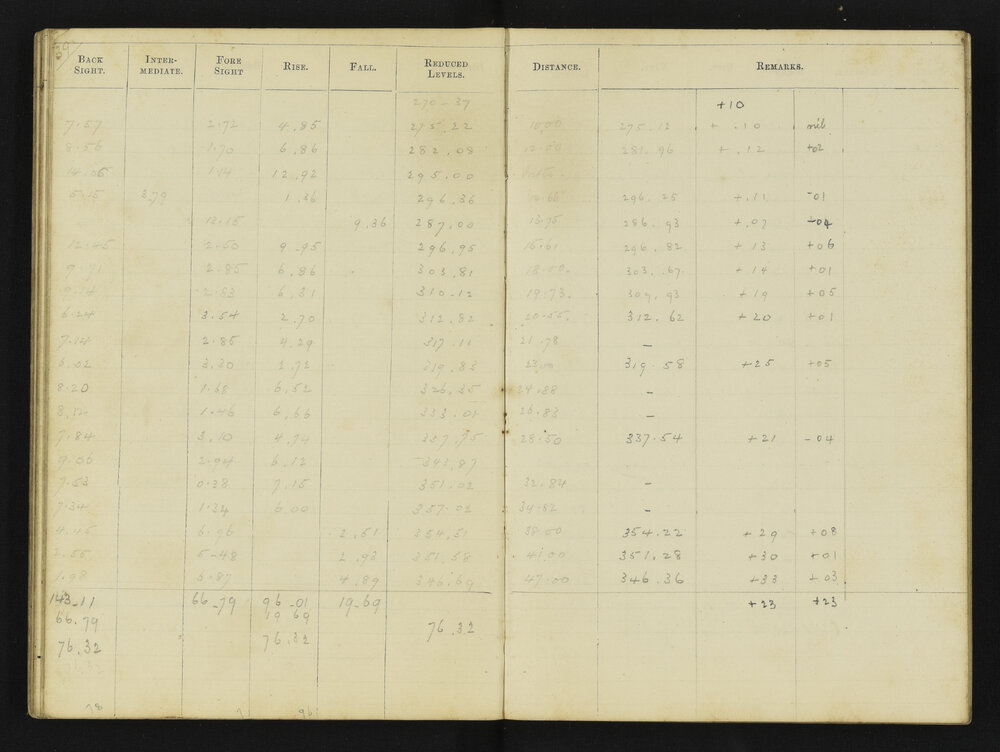 39
BACK SIGHT. INTER-MEDIATE. FORE SIGHT RISE. FALL. REDUCED LEVELS. DISTANCE. REMARKS.
270-37 +10
7.57 2.72 4.85 275.22 10.00 275.12 + .10 nil
8.56 1.70 6.86 282.08 12.50 281.96 + .12 +02
14.06 1.14 12.92 295.00
5.15 3.79 1.36 296.36 296.25 +.11 -01
12.15 9.36 287.00 13.75 286.93 +.07 -04
12.45 2.50 9.95 296.95 15.61 296.82 + 13 +06
9.71 2.85 6.86 303.81 18.00. 303.67. + 14 +01
2.83 6.31 310.12 19.73. 309.93 +19 +05
6.24 3.54 2.70 312.82 20.55. 312.62 +20 +01
7.14 2.85 4.29 317.11 21.78 –
6.02 3.30 2.72 319.83 23.00 319.58 +25 +05
8.20 1.68 6.52 326.35 24.88 –
8.12 1.46 6.66 333.01 26.83 –
7.84 3.10 4.74 337.75 28.50 337.54 +21 -04
9.06 2.94 6.12 343.87
7.53 0.38 7.15 351.02 32.84 –
7.34 1.34 6.00 357.02 34.82 –
4.45 6.96 2.51 354.51 38.00 354.22 +29 +08
2.55 5-48 2.93 351.58 41.00 351.28 +30 +01
1.98 6.87 4.89 346.69 47.00 346.36 +33 +03
143-11 66-79 96-01 19-69 +23 +23
66.79 19 69 76.32
76.32 76.32
76.32
78 7 96